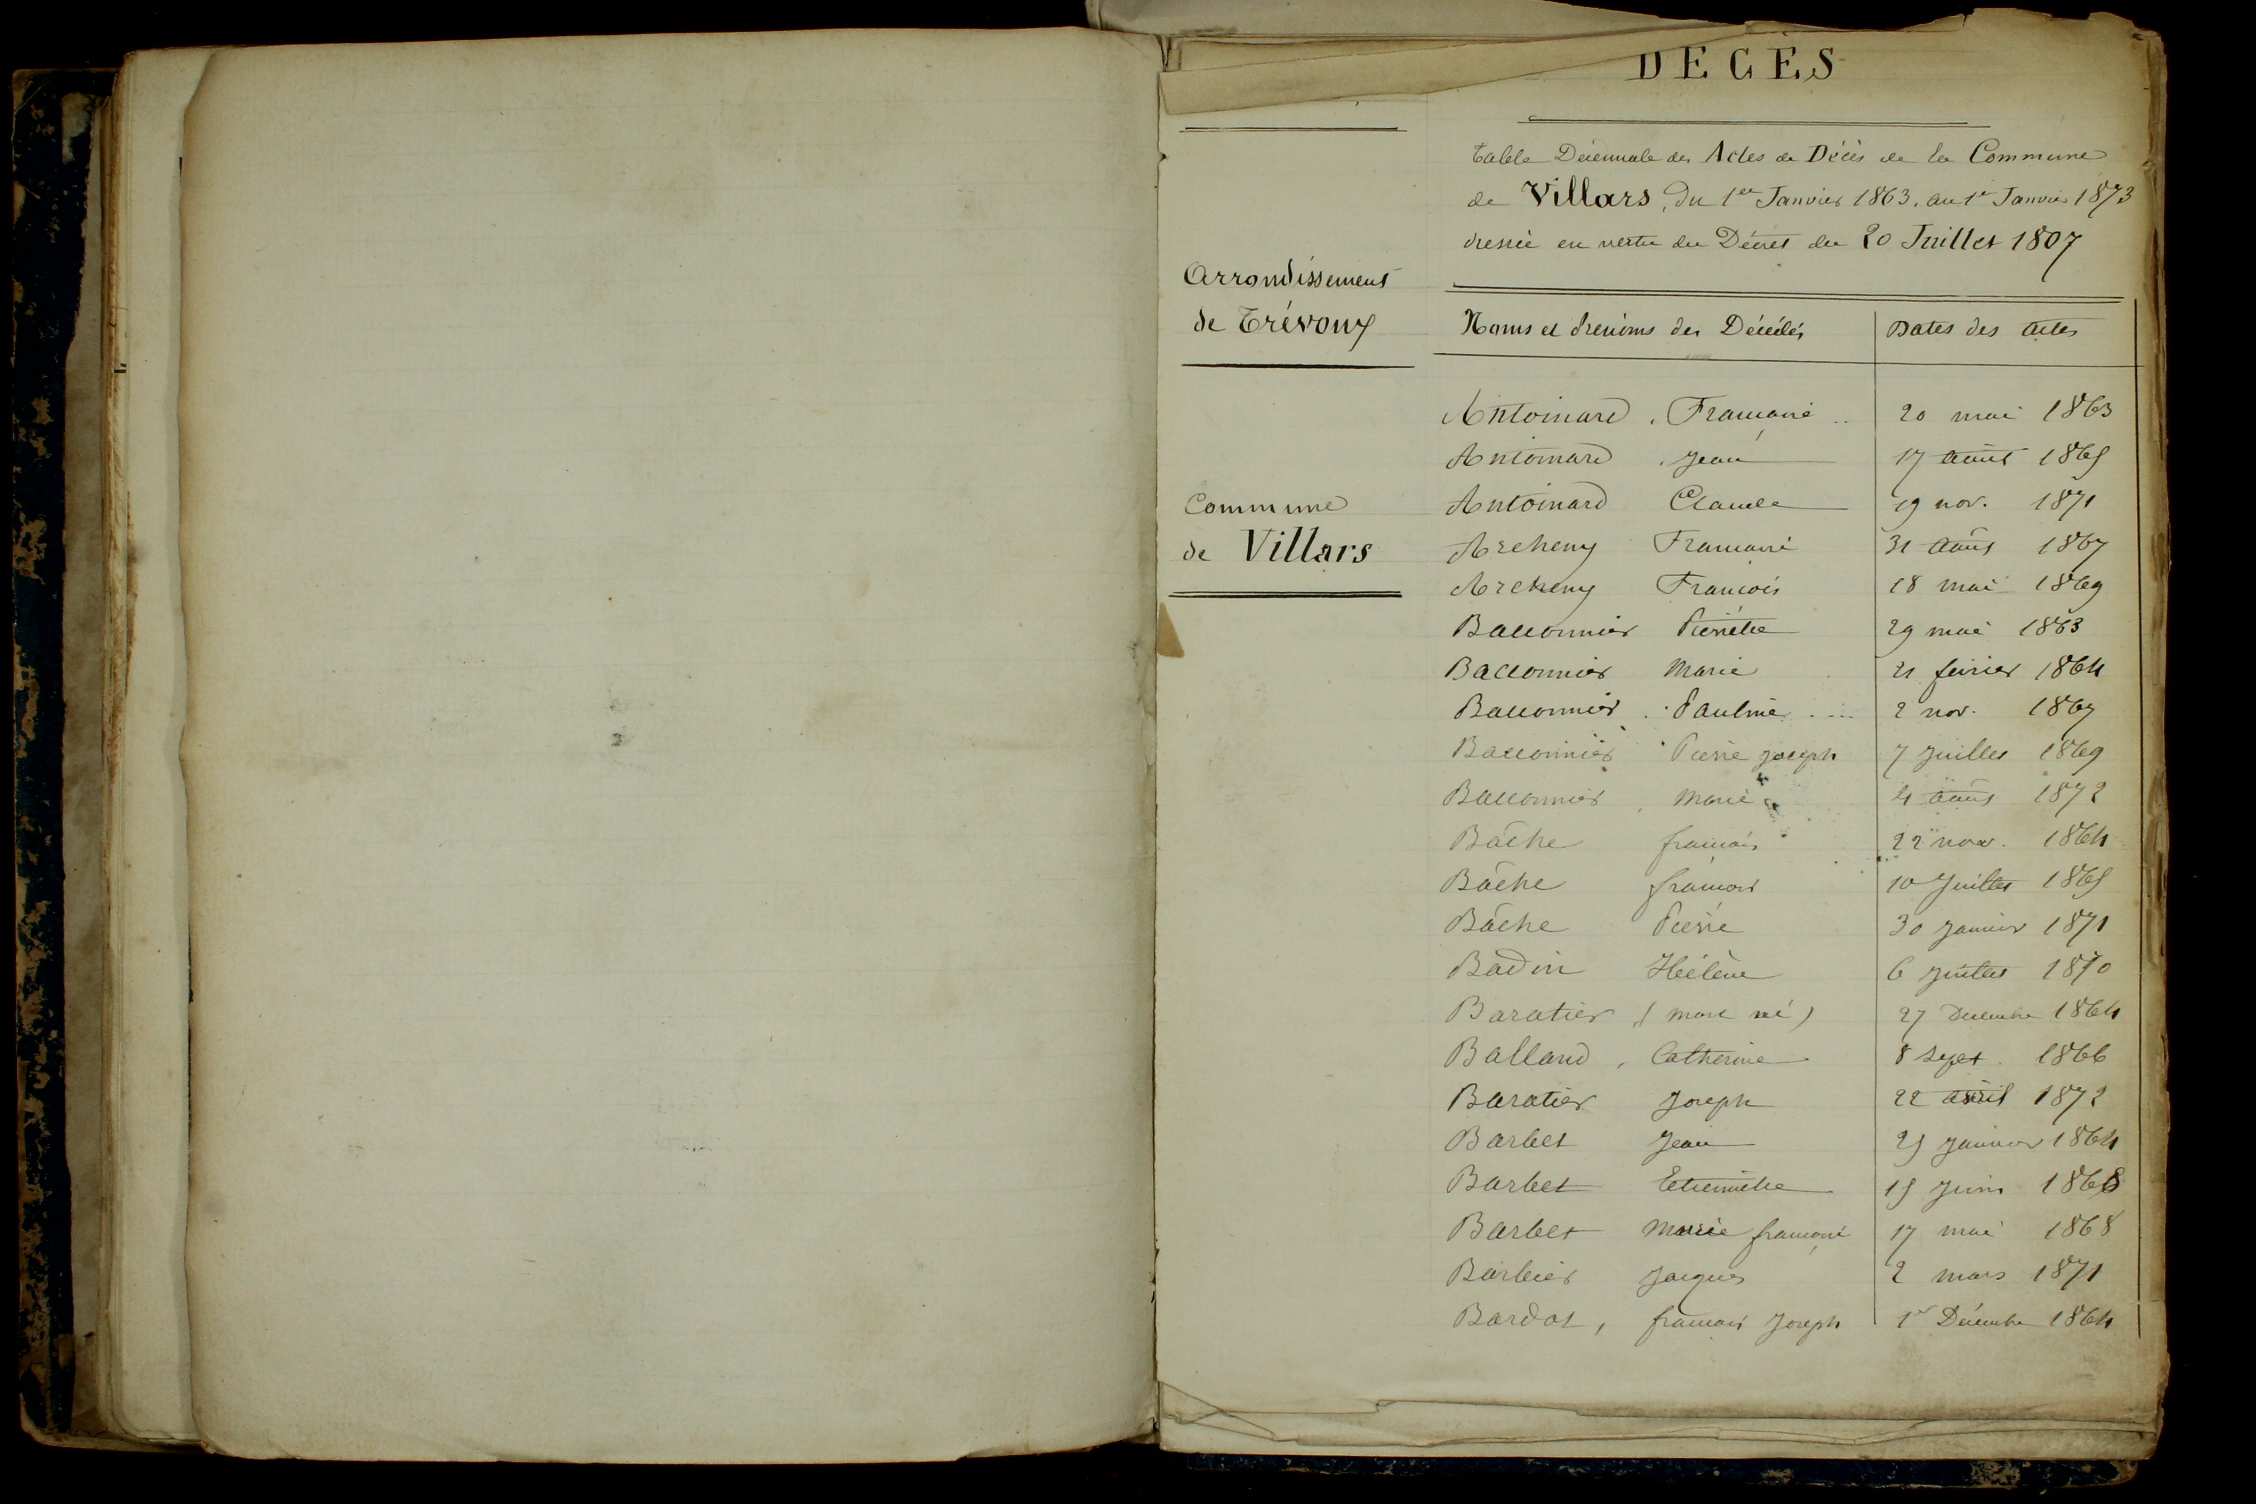 DECÈS
Table Décennale des Actes de Décès de la Commune
de Villars, du 1er Janvier 1863, au 1er Janvier 1873
dressée en vertu du Décret du 20 Juillet 1807
Arrondissement
de Trévoux
Commune
de Villars
Noms et Prénoms des Décédés Dates des Actes
Antoinard, Françoise 20 mai 1863
Antoinard, Jean 17 août 1865
Antoinard Claude 19 nov. 1871
Archeny Françoise 31 août 1867
Archeny François 18 mai 1869
Bacconnier Pierrette 29 mai 1863
Bacconnier Marie 21 février 1864
Bacconnier Pauline 2 nov. 1867
Bacconnier Pierre Joseph 7 Juillet 1869
Bacconnier Marie 4 août 1872
Bâche françois 22 nov. 1864
Bâche françois 10 Juillet 1865
Bâche Pierre 30 Janvier 1871
Badin Hélène 6 Juillet 1870
Baratier (mort né) 27 Décembre 1864
Balland, Catherine 8 Sept. 1866
Baratier Joseph 22 avril 1872
Barbet Jean 25 Janvier 1864
Barbet Etiennette 15 Juin 1866
Barbet Marie françoise 17 mai 1868
Barbier Jacques 2 mars 1871
Bardot, françois Joseph 1er Décembre 1864